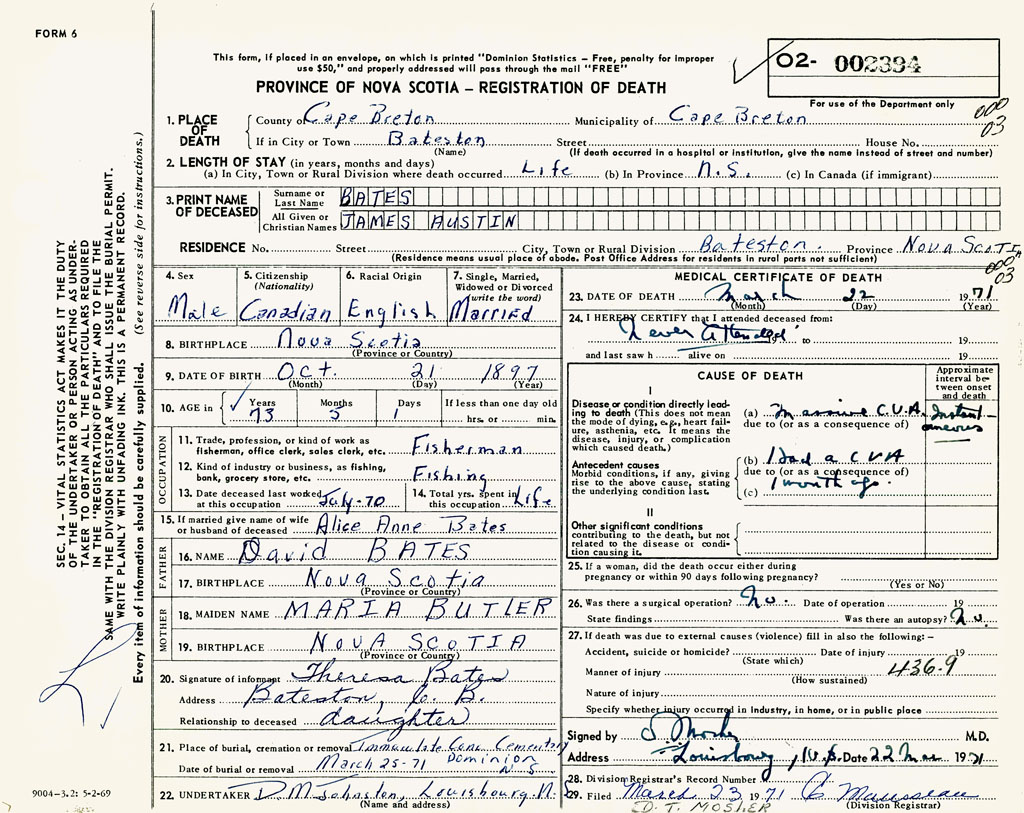 FORM 6
This form, if placed in an envelope, on which is printed "Dominion Statistics – Free, penalty for improper
use $50," and properly addressed will pass through the mail "FREE"
02- 002394
PROVINCE OF NOVA SCOTIA – REGISTRATION OF DEATH
For use of the Department only
000
03
1. PLACE OF DEATH
County of Cape Breton Municipality of Cape Breton
If in City or Town Bateston Street House No.
(Name) (If death occurred in a hospital or institution, give the name instead of street and number)
2. LENGTH OF STAY (in years, months and days)
(a) In City, Town or Rural Division where death occurred Life (b) In Province N.S. (c) In Canada (if immigrant)
3. PRINT NAME OF DECEASED
Surname or Last Name BATES
All Given or Christian Names JAMES AUSTIN
RESIDENCE No. Street City, Town or Rural Division Bateston. Province NOVA SCOTIA
(Residence means usual place of abode. Post Office Address for residents in rural parts not sufficient)
000
03
SEC. 14 – VITAL STATISTICS ACT MAKES IT THE DUTY
OF THE UNDERTAKER OR PERSON ACTING AS UNDER-
TAKER TO OBTAIN ALL THE PARTICULARS REQUIRED
IN THE "REGISTRATION OF DEATH" AND TO FILE THE
SAME WITH THE DIVISION REGISTRAR WHO SHALL ISSUE THE BURIAL PERMIT.
WRITE PLAINLY WITH UNFADING INK. THIS IS A PERMANENT RECORD.
Every item of information should be carefully supplied. (See reverse side for instructions.)
4. Sex Male
5. Citizenship (Nationality) Canadian
6. Racial Origin English
7. Single, Married, Widowed or Divorced (write the word) Married
8. BIRTHPLACE Nova Scotia
(Province or Country)
9. DATE OF BIRTH Oct. 21 1897
(Month) (Day) (Year)
10. AGE in Years 73 Months 5 Days 1 If less than one day old
hrs. or min.
OCCUPATION
11. Trade, profession, or kind of work as
fisherman, office clerk, sales clerk, etc. Fisherman
12. Kind of industry or business, as fishing,
bank, grocery store, etc. Fishing
13. Date deceased last worked
at this occupation July-70
14. Total yrs. spent in
this occupation Life
15. If married give name of wife
or husband of deceased Alice Anne Bates
FATHER
16. NAME David BATES
17. BIRTHPLACE Nova Scotia
(Province or Country)
MOTHER
18. MAIDEN NAME MARIA BUTLER
19. BIRTHPLACE NOVA SCOTIA
(Province or Country)
20. Signature of informant Theresa Bates
Address Bateston, C. B.
Relationship to deceased daughter
21. Place of burial, cremation or removal Immaculate Conc. Cementary
Date of burial or removal March 25-71 Dominion N.S.
22. UNDERTAKER D.M Johnston, Louisbourg N.
(Name and address)
9004–3.2: 5-2-69
MEDICAL CERTIFICATE OF DEATH
23. DATE OF DEATH March 22 1971
(Month) (Day) (Year)
24. I HEREBY CERTIFY that I attended deceased from:
Never Attended to 19
and last saw h alive on 19
CAUSE OF DEATH
Approximate interval between onset and death
I
Disease or condition directly leading to death (This does not mean the mode of dying, e.g., heart failure, asthenia, etc. It means the disease, injury, or complication which caused death.)
(a) Massive C.V.A. Instantaneous
due to (or as a consequence of)
Antecedent causes
Morbid conditions, if any, giving rise to the above cause, stating the underlying condition last.
(b) Had a CVA
due to (or as a consequence of)
(c) 1 month ago.
II
Other significant conditions
contributing to the death, but not related to the disease or condition causing it.
25. If a woman, did the death occur either during
pregnancy or within 90 days following pregnancy?
(Yes or No)
26. Was there a surgical operation? No. Date of operation 19
State findings Was there an autopsy? No.
27. If death was due to external causes (violence) fill in also the following:–
Accident, suicide or homicide? Date of injury 19
(State which)
Manner of injury 436.9
(How sustained)
Nature of injury
Specify whether injury occurred in industry, in home, or in public place
Signed by Mosher M.D.
Address Louisbourg, N.S. Date 22 Mar 1971
28. Division Registrar's Record Number
29. Filed March 23 1971
(Division Registrar)
D. T. MOSLER